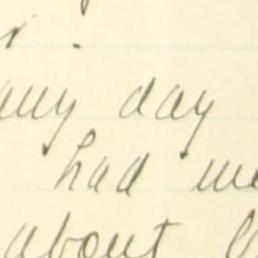 any day
had me
about